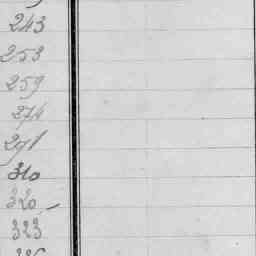 243
253
259
274
291
310
320
323